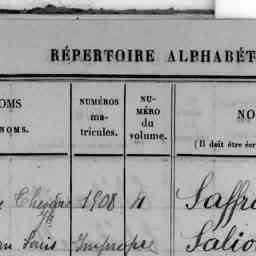 RÉPERTOIRE ALPHABÉT
OMS
NOMS.
NUMÉROS
ma-
tricules.
NU-
MÉRO
du
volume.
NO
(Il doit être écri
1908 4 Saffr
Louis Impropre Salio